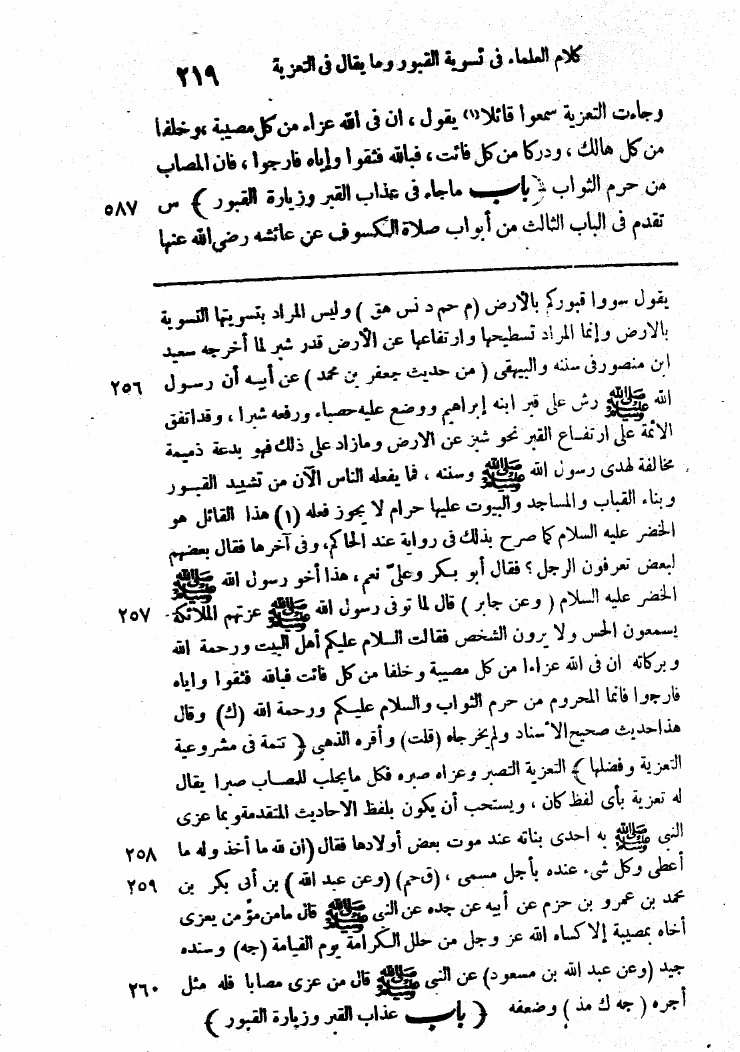 كلام العلماء فى تسوية القبور وما يقال فى التعزية ٢١٩
وجاءت التعزية سمعوا قائلا(١) يقول ، ان فى الله عزاء من كل مصيبة ، وخلفا
من كل هالك ، ودركا من كل فائت ، فبالله فثقوا وإياه فارجوا ، فان المصاب
من حرم الثواب ﴿ باب ماجاء فى عذاب القبر وزيارة القبور ﴾ س ٥٨٧
تقدم فى الباب الثالث من أبواب صلاة الكسوف عن عائشه رضى الله عنها
يقول سووا قبوركم بالأرض (م حم د نس هق ) وليس المراد بتسويتها التسوية
بالارض وإنما المراد تسطيحها وارتفاعها عن الأرض قدر شبر لما أخرجه سعيد
ابن منصور فى سننه والبيهقى ( من حديث جعفر بن محمد ) عن أبيه أن رسول ٢٥٦
الله ﷺ رش على قبر ابنه إبراهيم ووضع عليه حصباء ورفعه شبرا ، وقد اتفق
الائمة على ارتفاع القبر نحو شبر عن الارض ومازاد على ذلك فهو بدعة ذميمة
مخالفة لهدى رسول الله ﷺ وسننه ، فما يفعله الناس الآن من تشييد القبور
وبناء القباب والمساجد والبيوت عليها حرام لا يجوز فعله (١) هذا القائل هو
الخضر عليه السلام كما صرح بذلك فى رواية عند الحاكم، وفى آخرها فقال بعضهم
لبعض تعرفون الرجل ؟ فقال أبو بكر وعلىّ نعم، هذا أخو رسول الله ﷺ
الخضر عليه السلام ( وعن جابر ) قال لما توفى رسول الله ﷺ عزتهم الملائكة ٢٥٧
يسمعون الحس ولا يرون الشخص فقالت السلام عليكم أهل البيت ورحمة الله
وبركاته ان فى الله عزاءا من كل مصيبة وخلفا من كل فائت فبالله فثقوا واياه
فارجوا فانما المحروم من حرم الثواب والسلام عليكم ورحمة الله (ك) وقال
هذا حديث صحيح الأسناد ولم يخرجاه (قلت) وأقره الذهبى ﴿ تتمة فى مشروعية
التعزية وفضلها ﴾ التعزية التصبر وعزاه صبره فكل مايجلب للمصاب صبرا يقال
له تعزية بأى لفظ كان ، ويستحب أن يكون بلفظ الاحاديث المتقدمة وبما عزى
النبى ﷺ به احدى بناته عند موت بعض أولادها فقال (ان لله ما أخذ وله ما ٢٥٨
أعطى وكل شىء عنده بأجل مسمى ، (ق حم) (وعن عبد الله ) بن أبى بكر بن ٢٥٩
محمد بن عمرو بن حزم عن أبيه عن جده عن النبى ﷺ قال مامن مؤمن يعزى
أخاه بمصيبة إلا كساه الله عز وجل من حلل الكرامة يوم القيامة (جه) وسنده
جيد (وعن عبد الله بن مسعود) عن النبى ﷺ قال من عزى مصابا فله مثل ٢٦٠
أجره ( جه ك مذ ) وضعفه ﴿ باب عذاب القبر وزيارة القبور ﴾